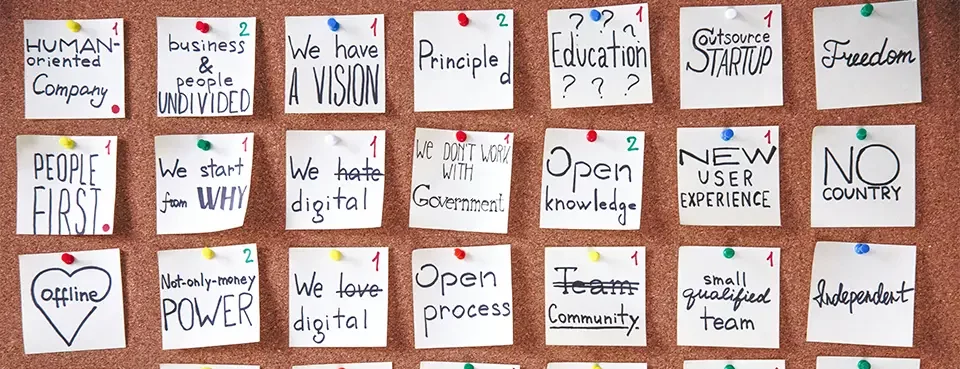 1
HUMAN-
oriented
Company
2
business
&
people
UNDIVIDED
1
We have
A VISION
2
Principled
1
? ? ?
Education
? ? ?
1
Outsource
STARTUP
Freedom
1
PEOPLE
FIRST
1
We start
from WHY
1
We hate
digital
1
WE DON'T WORK
WITH
Government
2
Open
knowledge
1
NEW
USER
EXPERIENCE
NO
COUNTRY
offline
2
Not-only-money
POWER
1
We love
digital
Open
process
1
Team
Community.
1
small
qualified
team
Independent